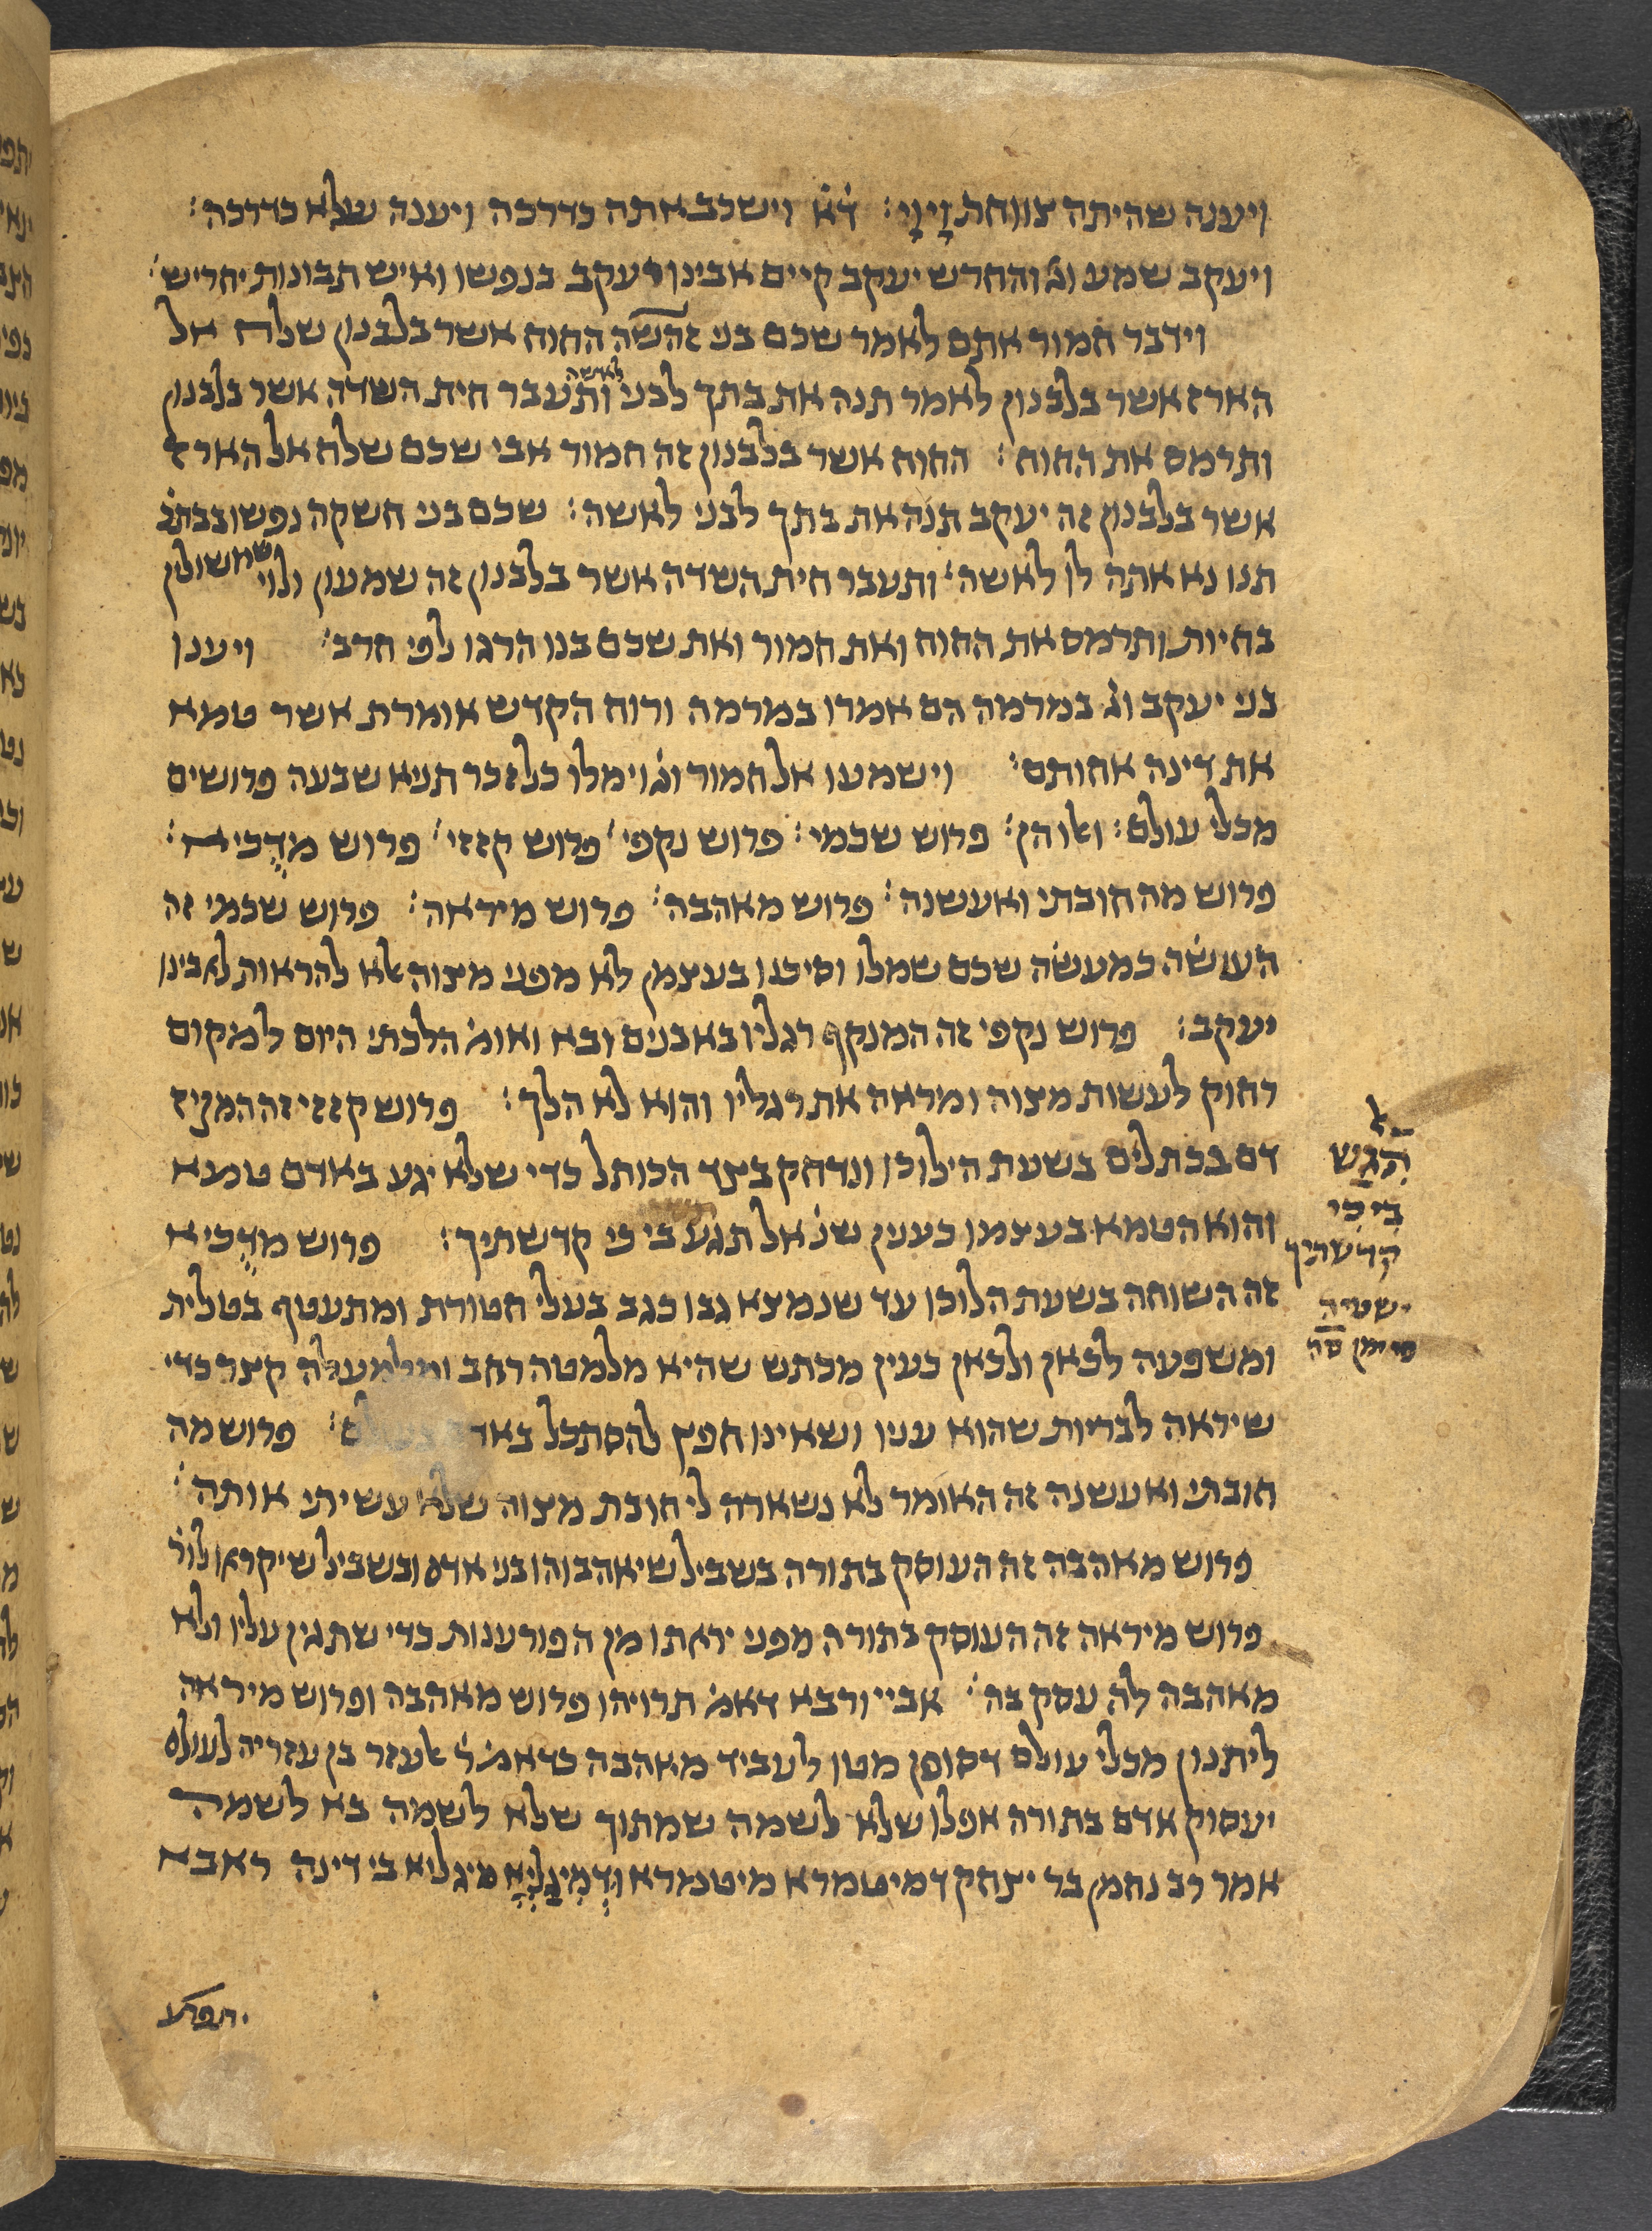 ויענה שהיתה צווחת וָיוָי׃ ד̇א̇ וישכב אתה כדרכה ויענה שלא כדרכה׃
ויעקב שמע וג̇ והחרש יעקב קיים אבינו יעקב בנפשו ואיש תבונות יחריש׃
וידבר חמור אתם לאמר שכם בני זהשה החוח אשר בלבנון שלח אל
הארז אשר בלבנון לאמר תנה את בתך לבני לאשה ותעבר חית השדה אשר בלבנון
ותרמס את החוח׃ החוח אשר בלבנון זה חמור אבי שכם שלח אל הארז
אשר בלבנון זה יעקב תנה את בתך לבני לאשה׃ שכם בני חשקה נפשו בבתכ̇
תנו נא אתה לו לאשה׃ ותעבר חית השדה אשר בלבנון זה שמעון ולוי שמשולין
בחיות ותרמס את החוח ואת חמור ואת שכם בנו הרגו לפי חרב׃ ויענו
בני יעקב וג̇ במרמה הם אמרו במרמה ורוח הקדש אומרת אשר טמא
את דינה אחותם׃ וישמעו אל חמור וג̇ וימלו כל זכר תניא שבעה פרושים
מכלי עולם׃ ואלו הן׃ פרוש שכמי׃ פרוש נקפי׃ פרוש קזזי׃ פרוש מדָכיא׃
פרוש מה חובתי ואעשנה׃ פרוש מאהבה׃ פרוש מיראה׃ פרוש שכמי זה
העושה כמעשה שכם שמלו וסיכנו בעצמן לא מפני מצוה אלא להראות לאבינו
יעקב׃ פרוש נקפי זה המנקף רגליו באבנים ובא ואומ̇ הלכתי היום למקום
רחוק לעשות מצוה ומראה את רגליו והוא לא הלך׃ פרוש קזזי זה המקיז
דם בכתלים בשעת הילוכו ונדחק בצד הכותל כדי שלא יגע באדם טמא
והוא הטמא בעצמו כענין שנ̇ אל תגע בי כי קדשתיך׃ פרוש מדָכיא
זה השוחה בשעת הלוכו עד שנמצא גבו כגב בעלי חטורת ומתעטף בטלית
ומשפעה לכאן ולכאן כעין מכתש שהיא מלמטה רחב ומלמעלה קצר כדי
שיראה לבריות שהוא עניו ושאינו חפץ להסתכל באדם בעולם׃ פרוש מה
חובתי ואעשנה זה האומר לא נשארה לי חובת מצוה שלא עשיתי אותה׃
פרוש מאהבה זה העוסק בתורה בשביל שיאהבוהו בני אדם ובשביל שיקראו לו ר̇
פרוש מיראה זה העוסק בתורה מפני יראתו מן הפורענות כדי שתגין עליו ולא
מאהבה לה עסק בה׃ אביי ורבא דאמ̇ תרויהו פרוש מאהבה ופרוש מיראה
ליתנון מכלי עולם דסופן מטו לעביד מאהבה כדאמ̇ ר̇ אלעזר בן עזריה לעולם
יעסוק אדם בתורה אפלו שלא לשמה שמתוך שלא לשמה בא לשמה
אמר רב נחמן בר יצחק דמיטמרא מיטמרא וּדְמִיגַלְיָא מיגליא בי דינה ראבא
יתפרע
ל
הִגַּש
בי כי
קדשתיך
ישעיה
סימן סה